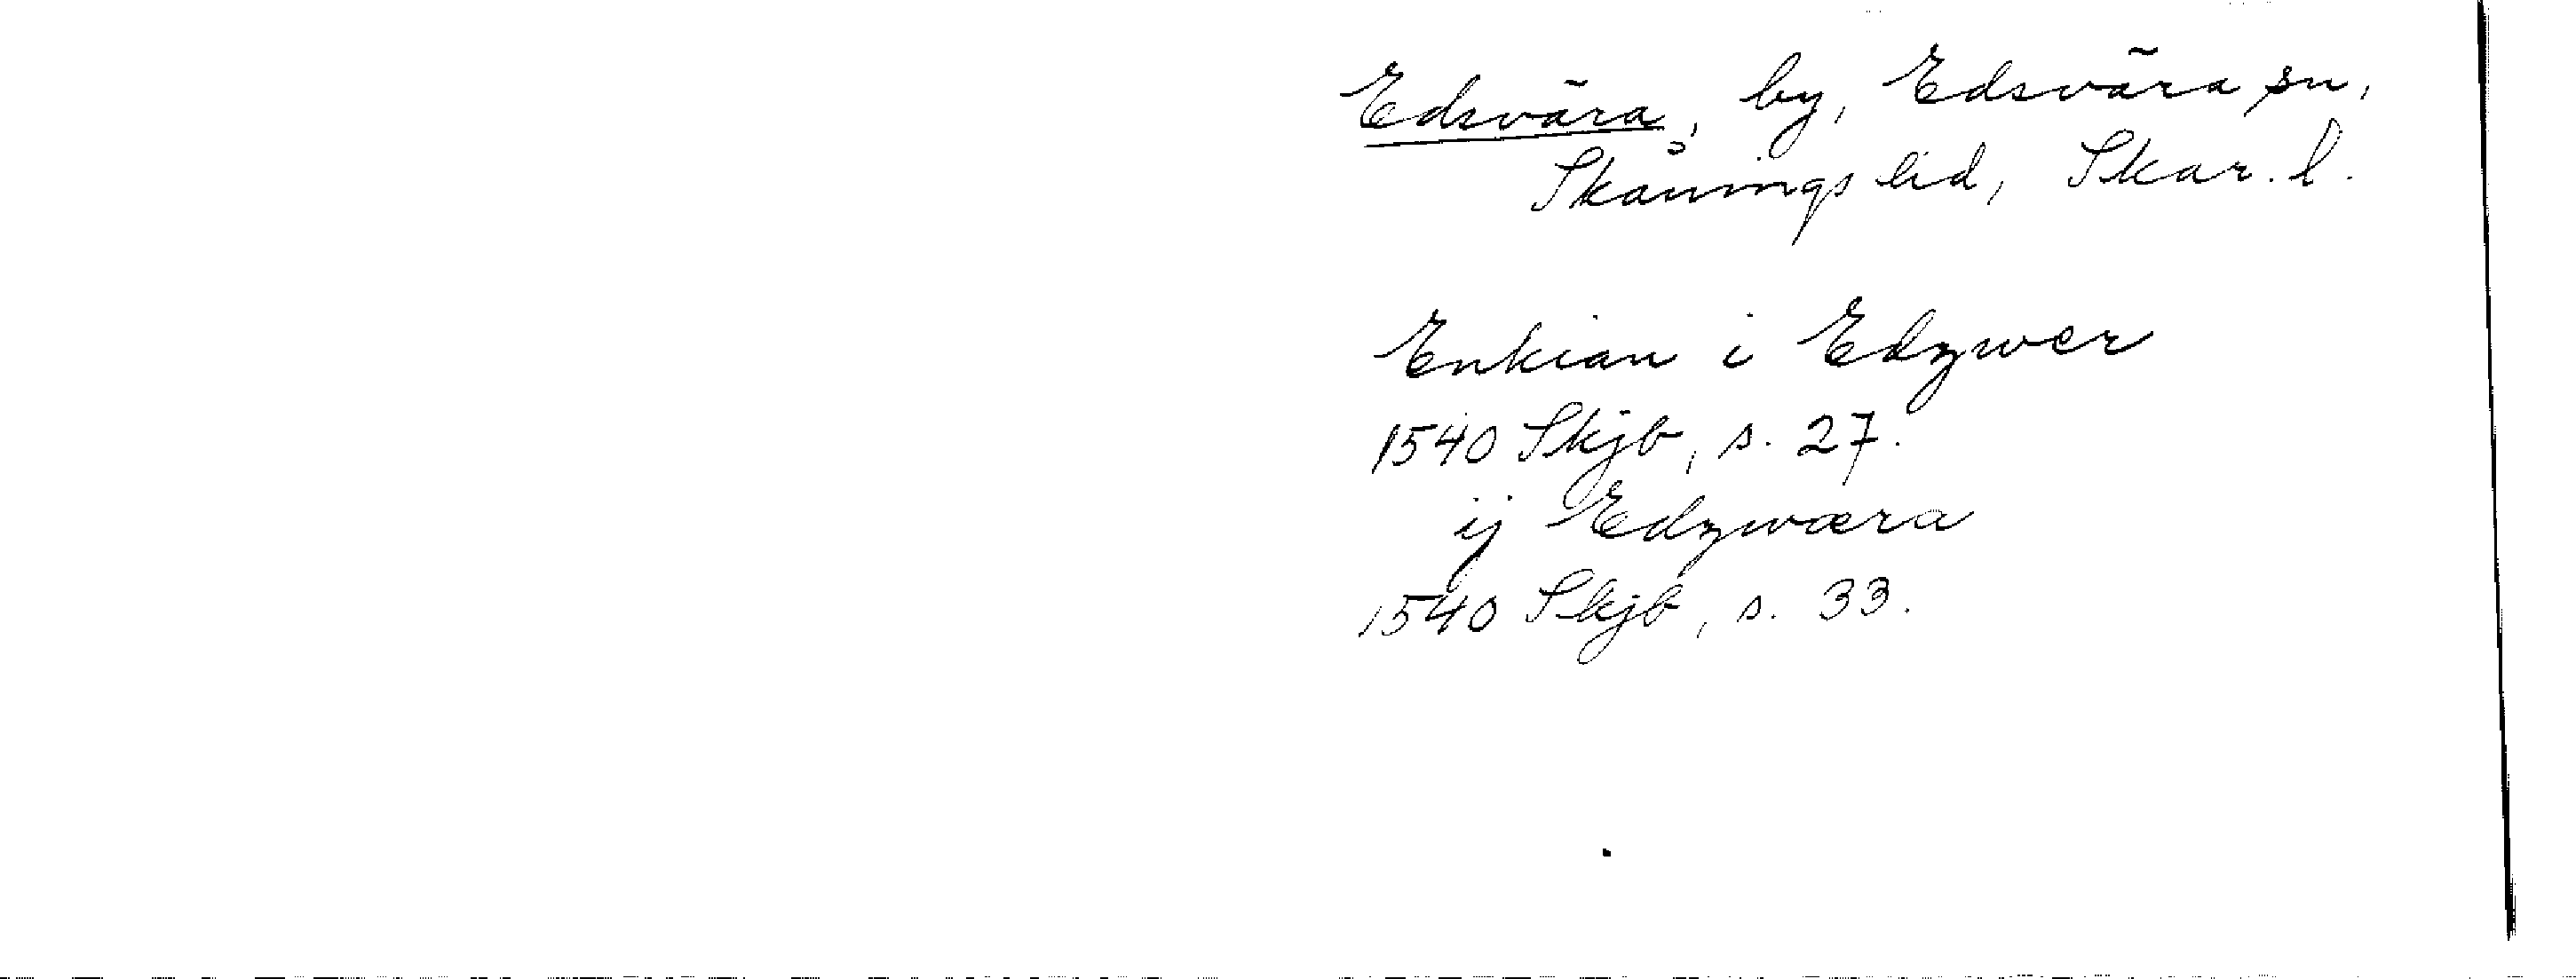 Edsvära, by, Edsvära sn,
Skånings hd, Skar. l.
Enkian i Edzwer
1540 Skjb, s. 27.
ij Edzwæra
1540 Skjb, s. 33.